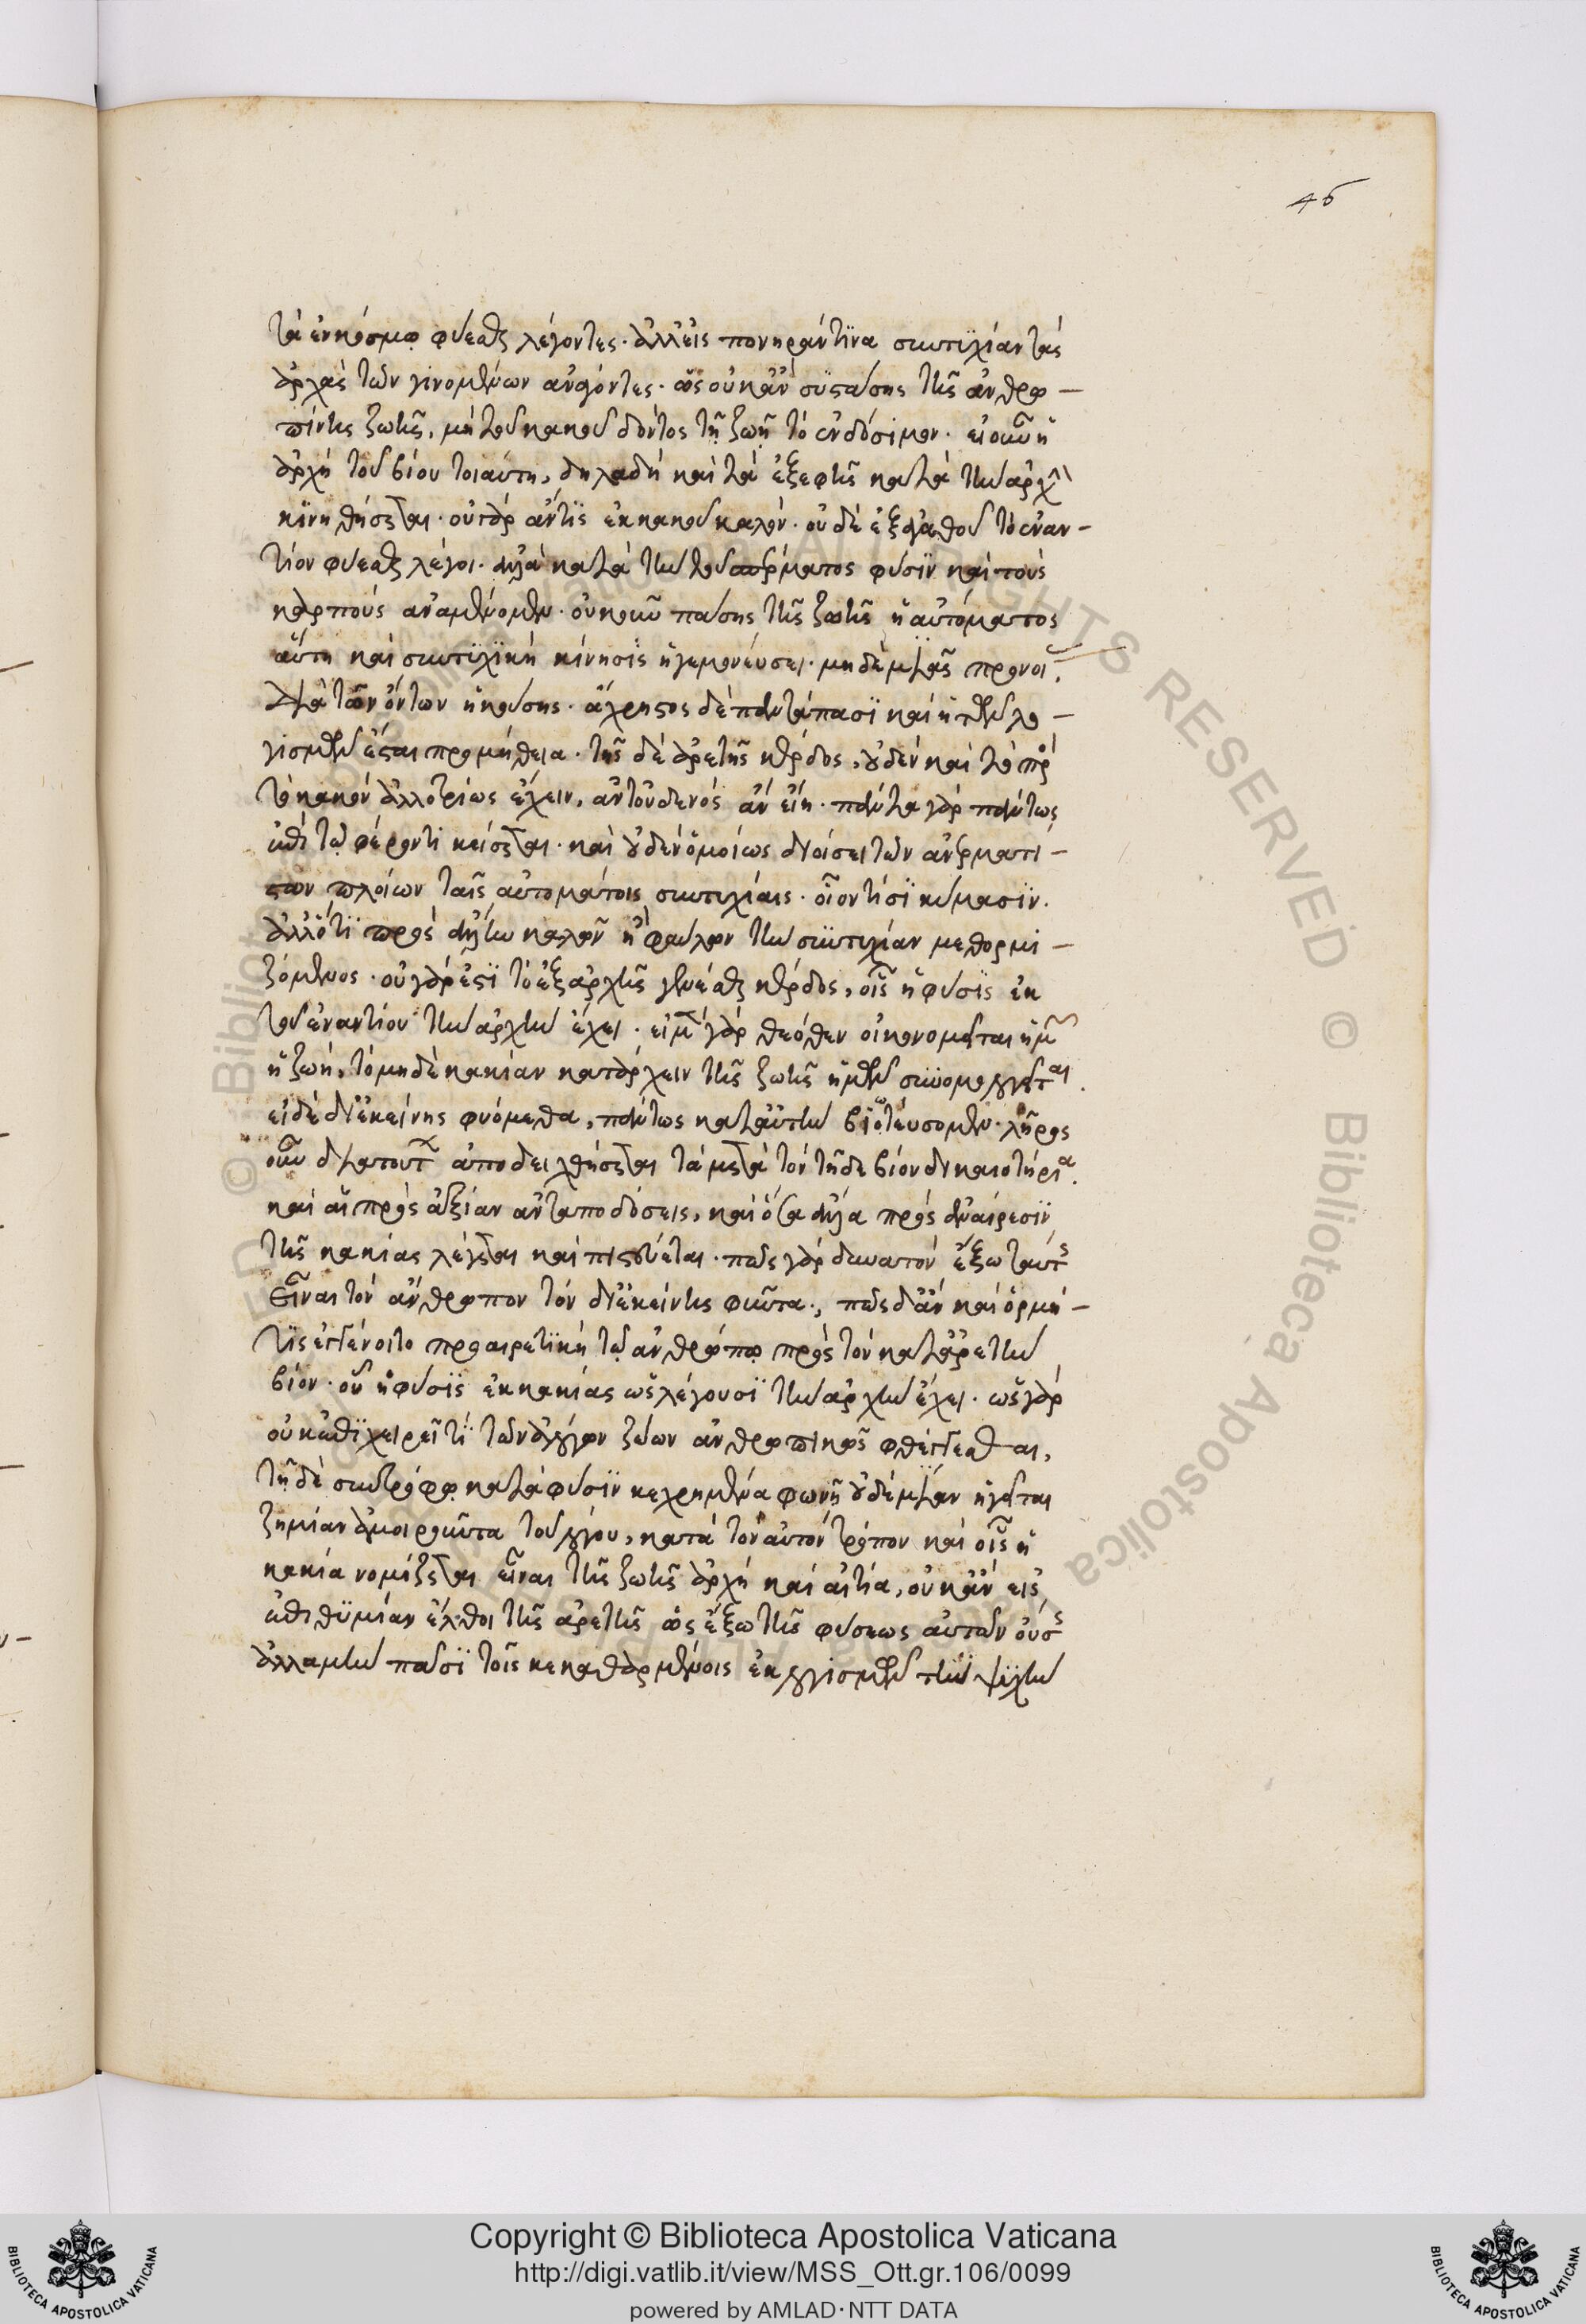 46
τὰ ἐν κόσμω φύεσθαι λέγοντες· ἀλλ' εἰς πονηράν τινα συντυχίαν τὰς
ἀρχὰς τῶν γινομένων ἀνάγοντες· ὡς οὐκ ἂν συστάσης τῆς ἀνθρω-
πίνης ζωῆς, μὴ τοῦ κακοῦ δόντος τῇ ζωῇ τὸ ἐνδόσιμον· εἰ οὖν ἡ
ἀρχὴ τοῦ βίου τοιαύτη, δηλαδὴ καὶ τὰ ἐξ ἐφεξῆς κατὰ τὴν ἀρχὴν
κινηθήσεται· οὐ γὰρ ἄν τις ἐκ κακοῦ καλὸν· οὐδὲ ἐξ ἀγαθοῦ τὸ ἐναν-
τίον φύεσθαι λέγοι· ἀλλὰ κατὰ τὴν τοῦ σπέρματος φύσιν καὶ τοὺς
καρποὺς ἀναμένομεν· οὐκοῦν πάσης τῆς ζωῆς ἡ αὐτόματος
αὕτη καὶ συντυχικὴ κίνησις ἡγεμονεύσει· μηδεμιᾶς προνοίας
διὰ τῶν ὄντων ἡκούσης· ἄχρηστος δὲ παντάπασι καὶ ἡ τῶν λο-
γισμῶν ἔσται προμήθεια· τῆς δὲ ἀρετῆς κέρδος, οὐδὲν καὶ τὸ πρὸς
τὸ κακὸν ἀλλοτρίως ἔχειν, ἀντ' οὐδενὸς ἂν εἴη· πάντα γὰρ πάντως
ἐπὶ τῷ φέροντι κείσεται· καὶ οὐδὲν ὁμοίως διοίσει τῶν ἀνερματί-
στων πλοίων ταῖς αὐτομάτοις συντυχίαις· οἷόν τισι κύμασιν·
ἄλλοτε πρὸς ἄλλην καλῶν ἢ φαύλων τὴν συντυχίαν μεθορμι-
ζόμενος· οὐ γὰρ ἔστι τὸ ἐξ ἀρχῆς γενέσθαι κέρδος, οἷς ἡ φύσις ἐκ
τοῦ ἐναντίου τὴν ἀρχὴν ἔχει· εἰ μὲν γὰρ θεόθεν οἰκονομεῖται ἡμῶν
ἡ ζωή, τὸ μηδὲ κακίαν κατάρχειν τῆς ζωῆς ἡμῶν συνομολογεῖται·
εἰ δὲ δι' ἐκείνης φυόμεθα, πάντως κατ' αὐτὴν βιοτεύσομεν· λῆρος
οὖν διὰ τούτων ἀποδειχθήσεται τὰ μετὰ τὸν τῇδε βίον δικαιωτήρια·
καὶ αἱ πρὸς ἀξίαν ἀνταποδόσεις, καὶ ὅσα ἄλλα πρὸς ἀναίρεσιν
τῆς κακίας λέγεται καὶ πιστεύεται· πῶς γὰρ δυνατὸν ἔξω ταύτης
εἶναι τὸν ἄνθρωπον τὸν δι' ἐκείνης φύντα·, πῶς δ' ἂν καὶ ὁρμή-
τις ἐγγένοιτο προαιρετικὴ τῷ ἀνθρώπω πρὸς τὸν κατ' ἀρετὴν
βίον· οὗ ἡ φύσις ἐκ κακίας ὡς λέγουσι τὴν ἀρχὴν ἔχει· ὡς γὰρ
οὐκ ἐπιχειρεῖ τι τῶν ἀλόγων ζώων ἀνθρωπικῶς φθέγγεσθαι,
τῇ δὲ συντρόφω κατὰ φύσιν κεχρημένα φωνῇ οὐδεμίαν ἡγεῖται
ζημίαν ἀμοιροῦντα τοῦ λόγου, κατὰ τὸν αὐτὸν τρόπον καὶ οἷς ἡ
κακία νομίζεται εἶναι τῆς ζωῆς ἀρχὴ καὶ αἰτία, οὐκ ἂν εἰς
ἐπιθυμίαν ἔλθοι τῆς ἀρετῆς ὡς ἔξω τῆς φύσεως αὐτῶν οὔσης
ἀλλὰ μὴν πᾶσι τοῖς κεκαθαρμένοις ἐκ λογισμῶν τὴν ψυχὴν
Copyright © Biblioteca Apostolica Vaticana
http://digi.vatlib.it/view/MSS_Ott.gr.106/0099
powered by AMLAD·NTT DATA